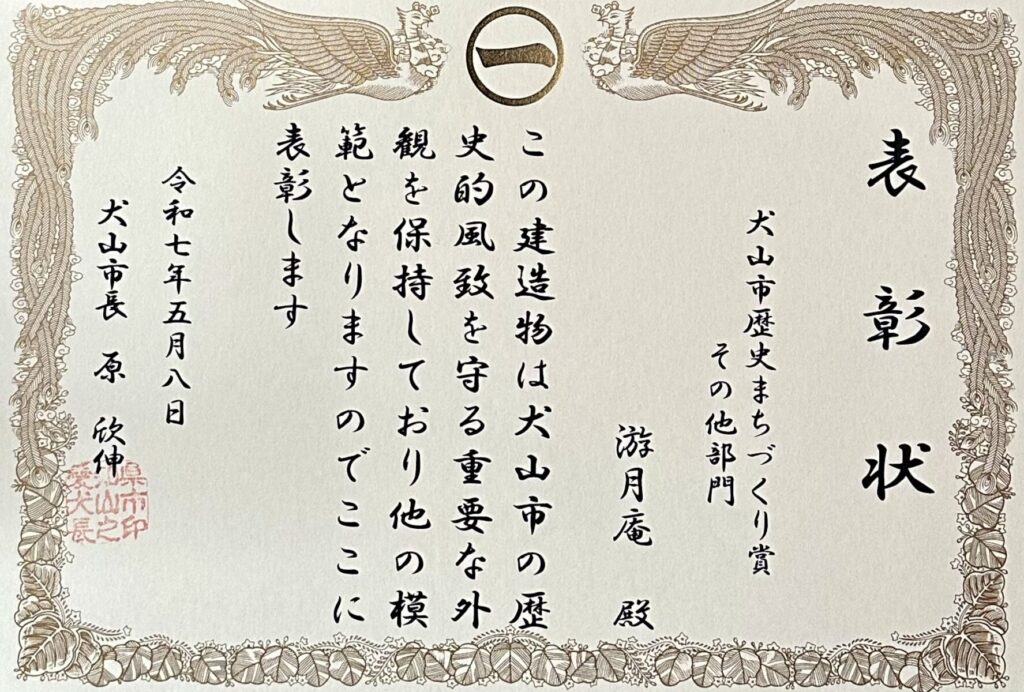 表彰状
犬山市歴史まちづくり賞
その他部門
游月庵 殿
この建造物は犬山市の歴
史的風致を守る重要な外
観を保持しており他の模
範となりますのでここに
表彰します
令和七年五月八日
犬山市長 原 欣伸
県市印
知山之
愛犬長
一